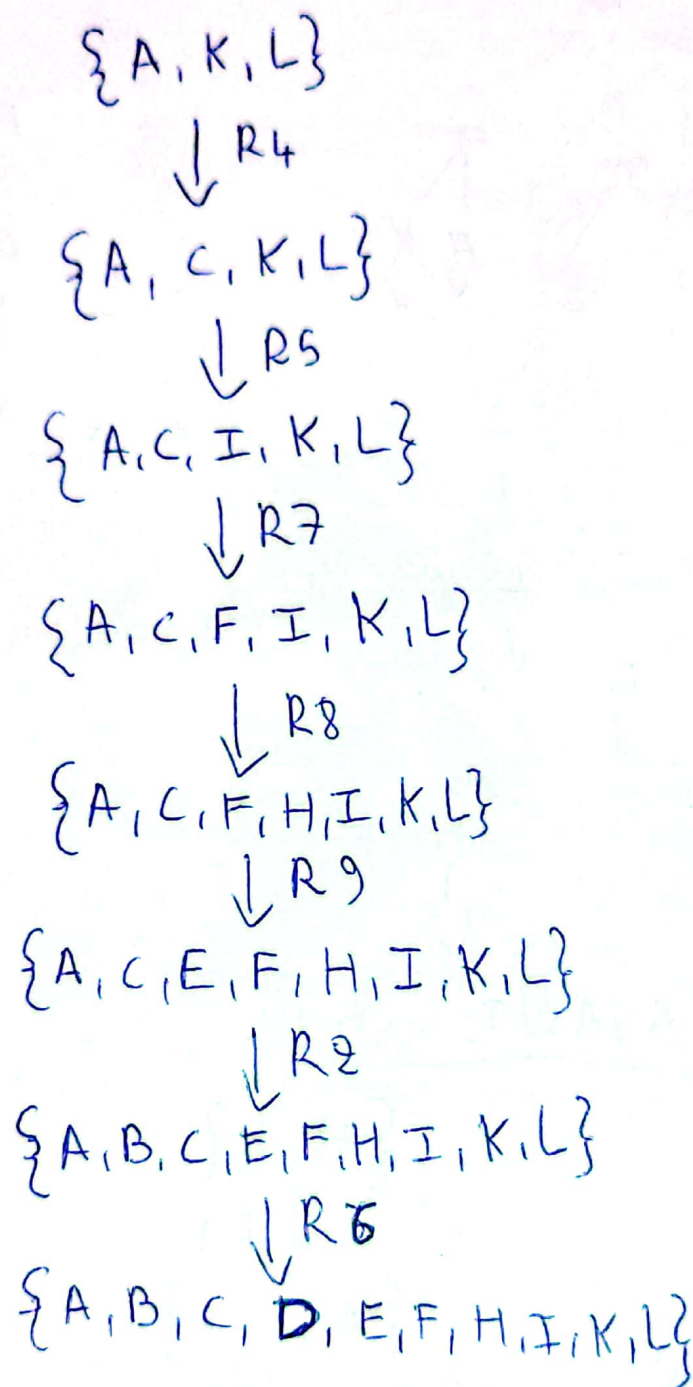 {A, K, L}
↓ R4
{A, C, K, L}
↓ R5
{A, C, I, K, L}
↓ R7
{A, C, F, I, K, L}
↓ R8
{A, C, F, H, I, K, L}
↓ R9
{A, C, E, F, H, I, K, L}
↓ R2
{A, B, C, E, F, H, I, K, L}
↓ R6
{A, B, C, D, E, F, H, I, K, L}